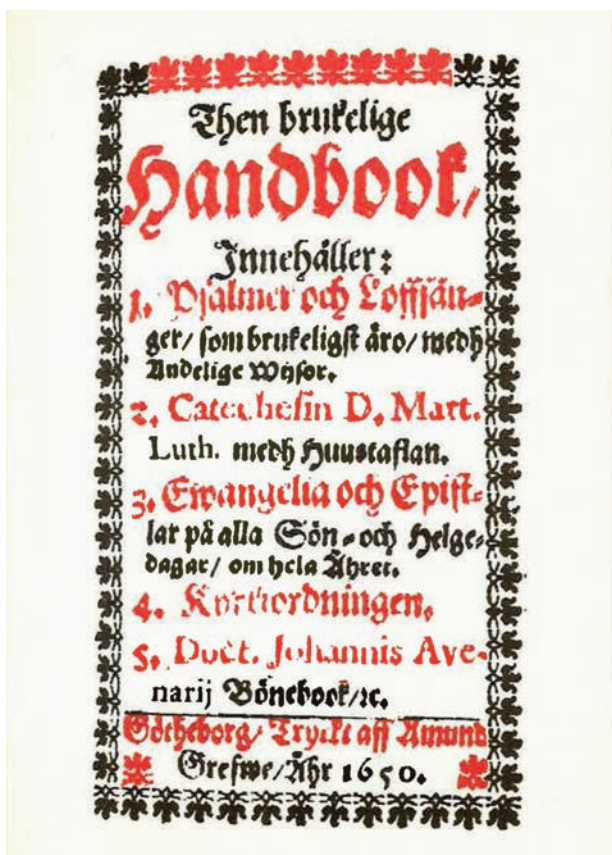 Then brukelige
Handbook/
Innehåller:
1. Psalmer och Loffsån-
ger/ som brukeligst äro/ medh
Andelige Wijsor.
2. Catechesin D. Mart.
Luth. medh Huustaflan.
3. Ewangelia och Epist-
lar på alla Sön- och Helge-
dagar/ om hela Åhret.
4. Kyrkiordningen.
5. Doct. Johannis Ave-
narij Bönebook/ ꝛc.
Götheborg/ Tryckt aff Amund
Grefwe/ Åhr 1650.